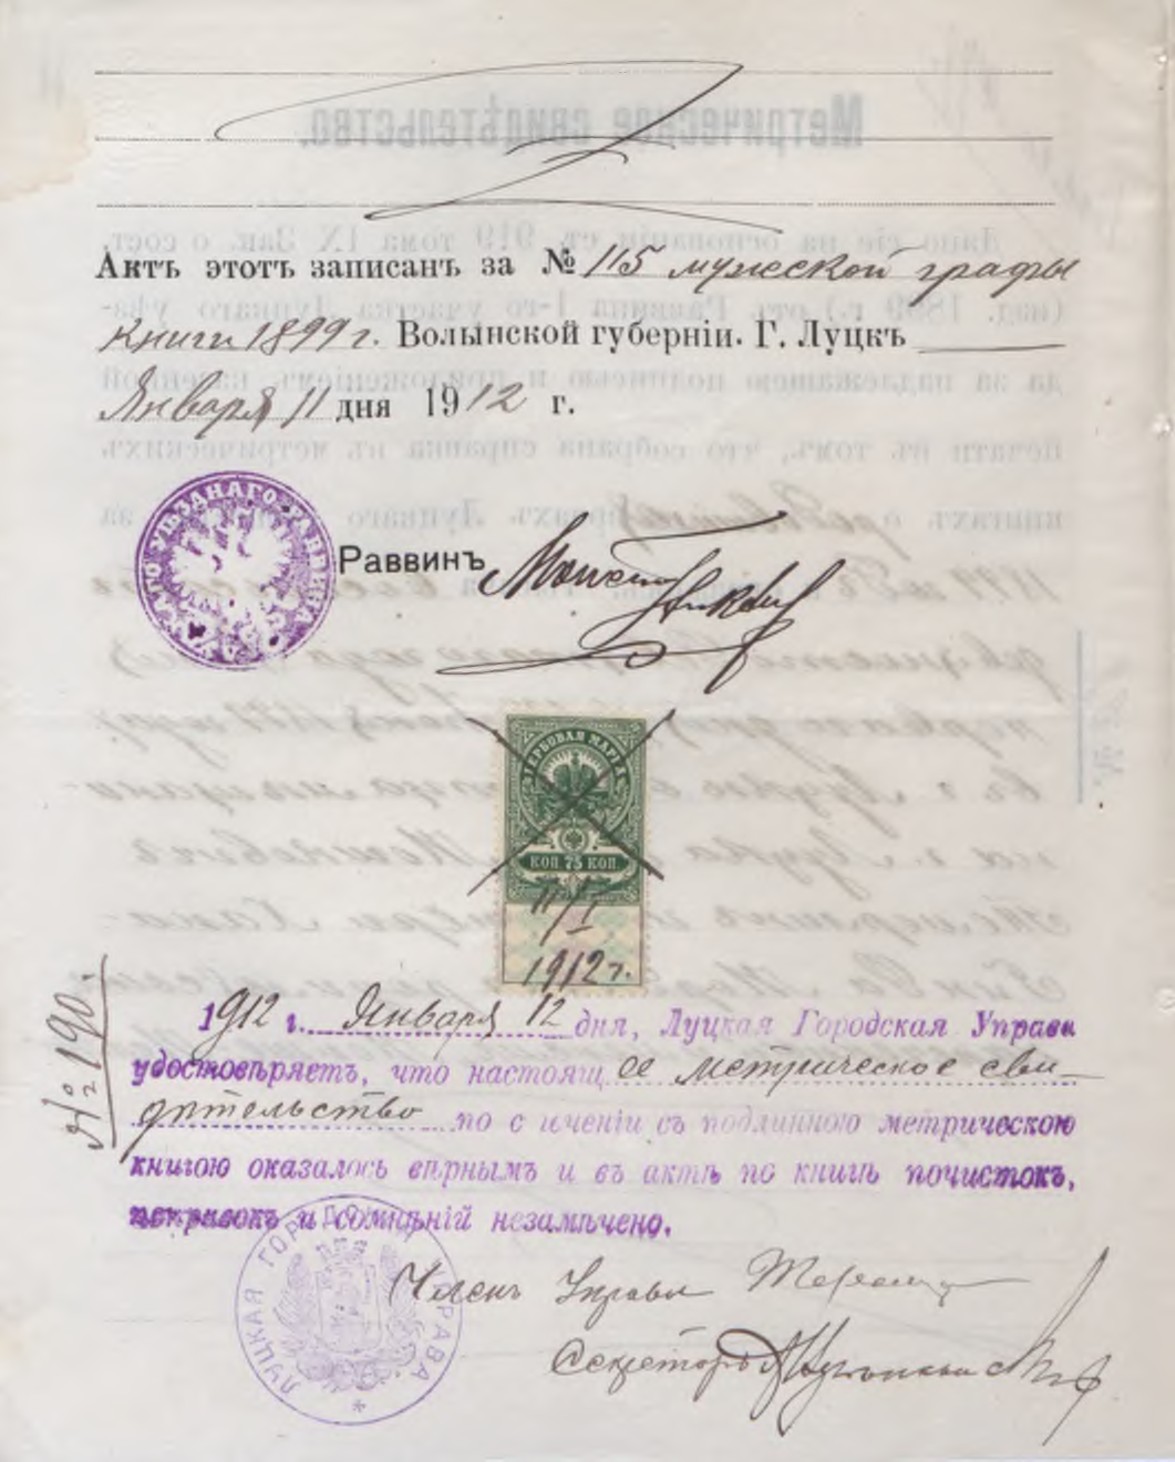 Актъ этотъ записанъ за № 115 мужеской графы
книги 1899 г. Волынской губерніи. Г. Луцкъ
Января 11 дня 1912 г.
УѢЗДНАГО РАВВИНА
Раввинъ
ГЕРБОВАЯ МАРКА
КОП 75 КОП.
11/I
1912 г.
№ 190.
1912 г. Января 12 дня, Луцкая Городская Управа
удостовѣряетъ, что настоящее метрическое сви-
дѣтельство по сличеніи съ подлинною метрическою
книгою оказалось вѣрнымъ и въ актѣ по книгѣ почистокъ,
поправокъ и сомнѣній незамѣчено.
ЛУЦКАЯ ГОРОДСКАЯ УПРАВА
Членъ Управы
Секретарь